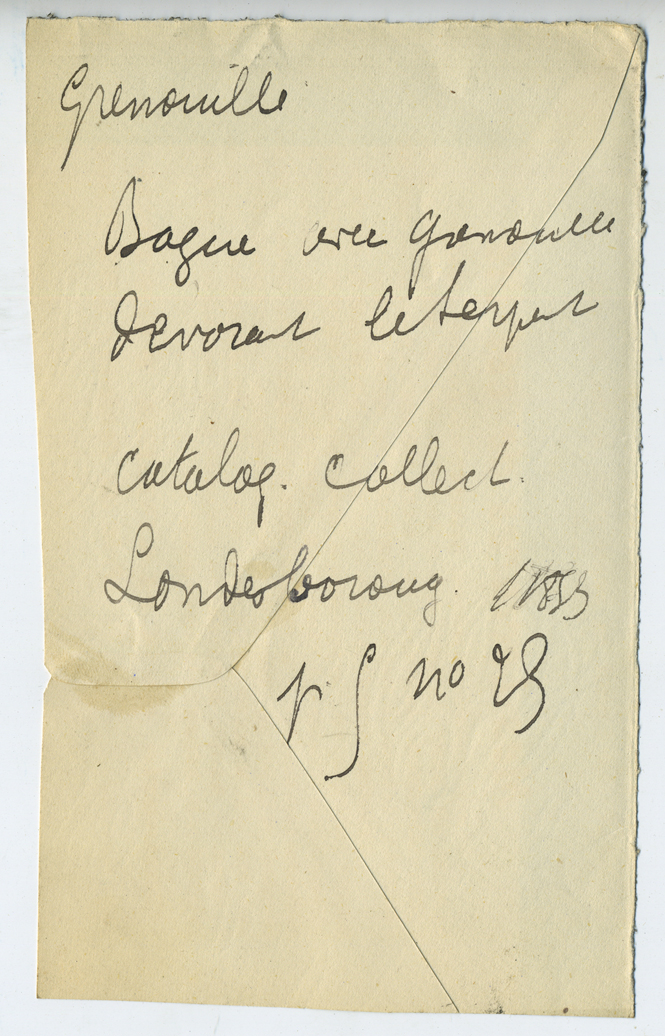 Grenouille
Bague avec Grenouille
devorant le serpent
catalog. collect.
Londesboroug. 1853
p 5 no 25